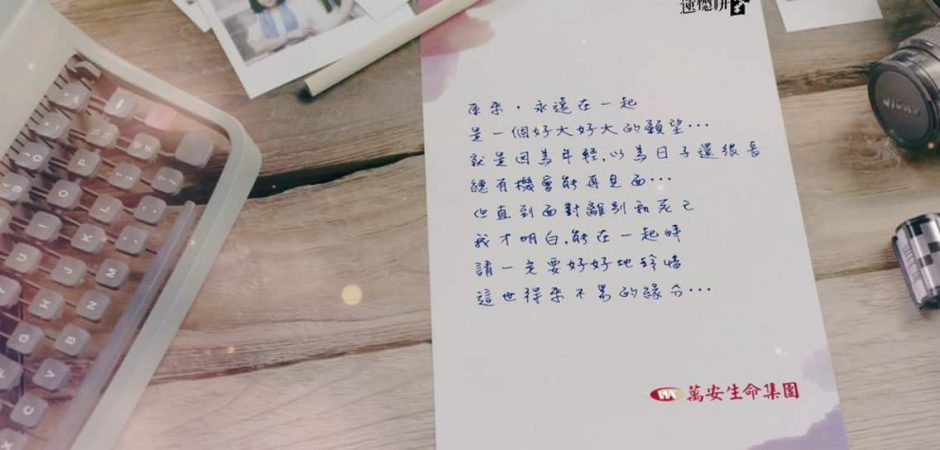 原來，永遠在一起
是一個好大好大的願望…
就是因為年輕，以為日子還很長
總有機會能再見面…
但直到面對離別和死亡
我才明白，能在一起時
請一定要好好地珍惜
這世得來不易的緣分…
萬安生命集團